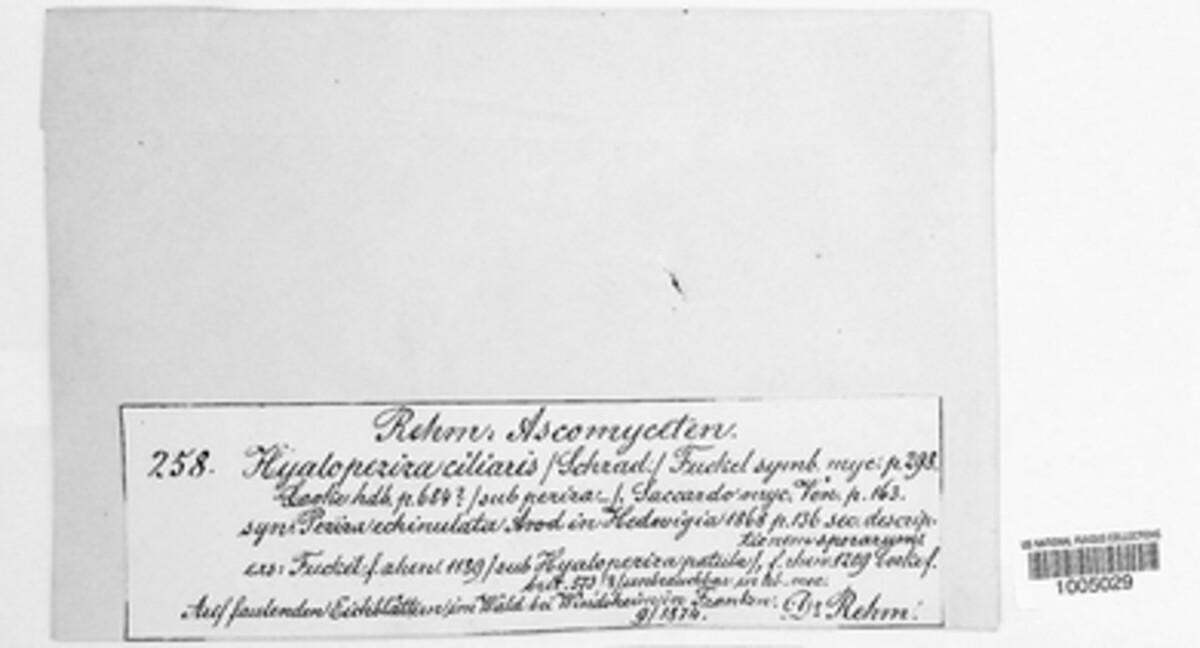 Rehm. Ascomyceten.
258. Hyalopeziza ciliaris (Schrad.) Fuckel symb. myc. p. 298.
Cooke hdb. p. 684? (sub peziza _). Saccardo myc. Ven. p. 163.
syn: Peziza echinulata Awd in Hedwigia 1868 p. 136 sec. descrip-
tionem sporarum
exs: Fuckel f. rhen. 1189 (sub Hyalopeziza patula), f. rhen. 1209 Cooke f.
brit. 573
Auf faulenden Eichblättern im Wald bei Windsheim in Franken.
9/1874. Dr Rehm.
US NATIONAL FUNGUS COLLECTIONS
1005029